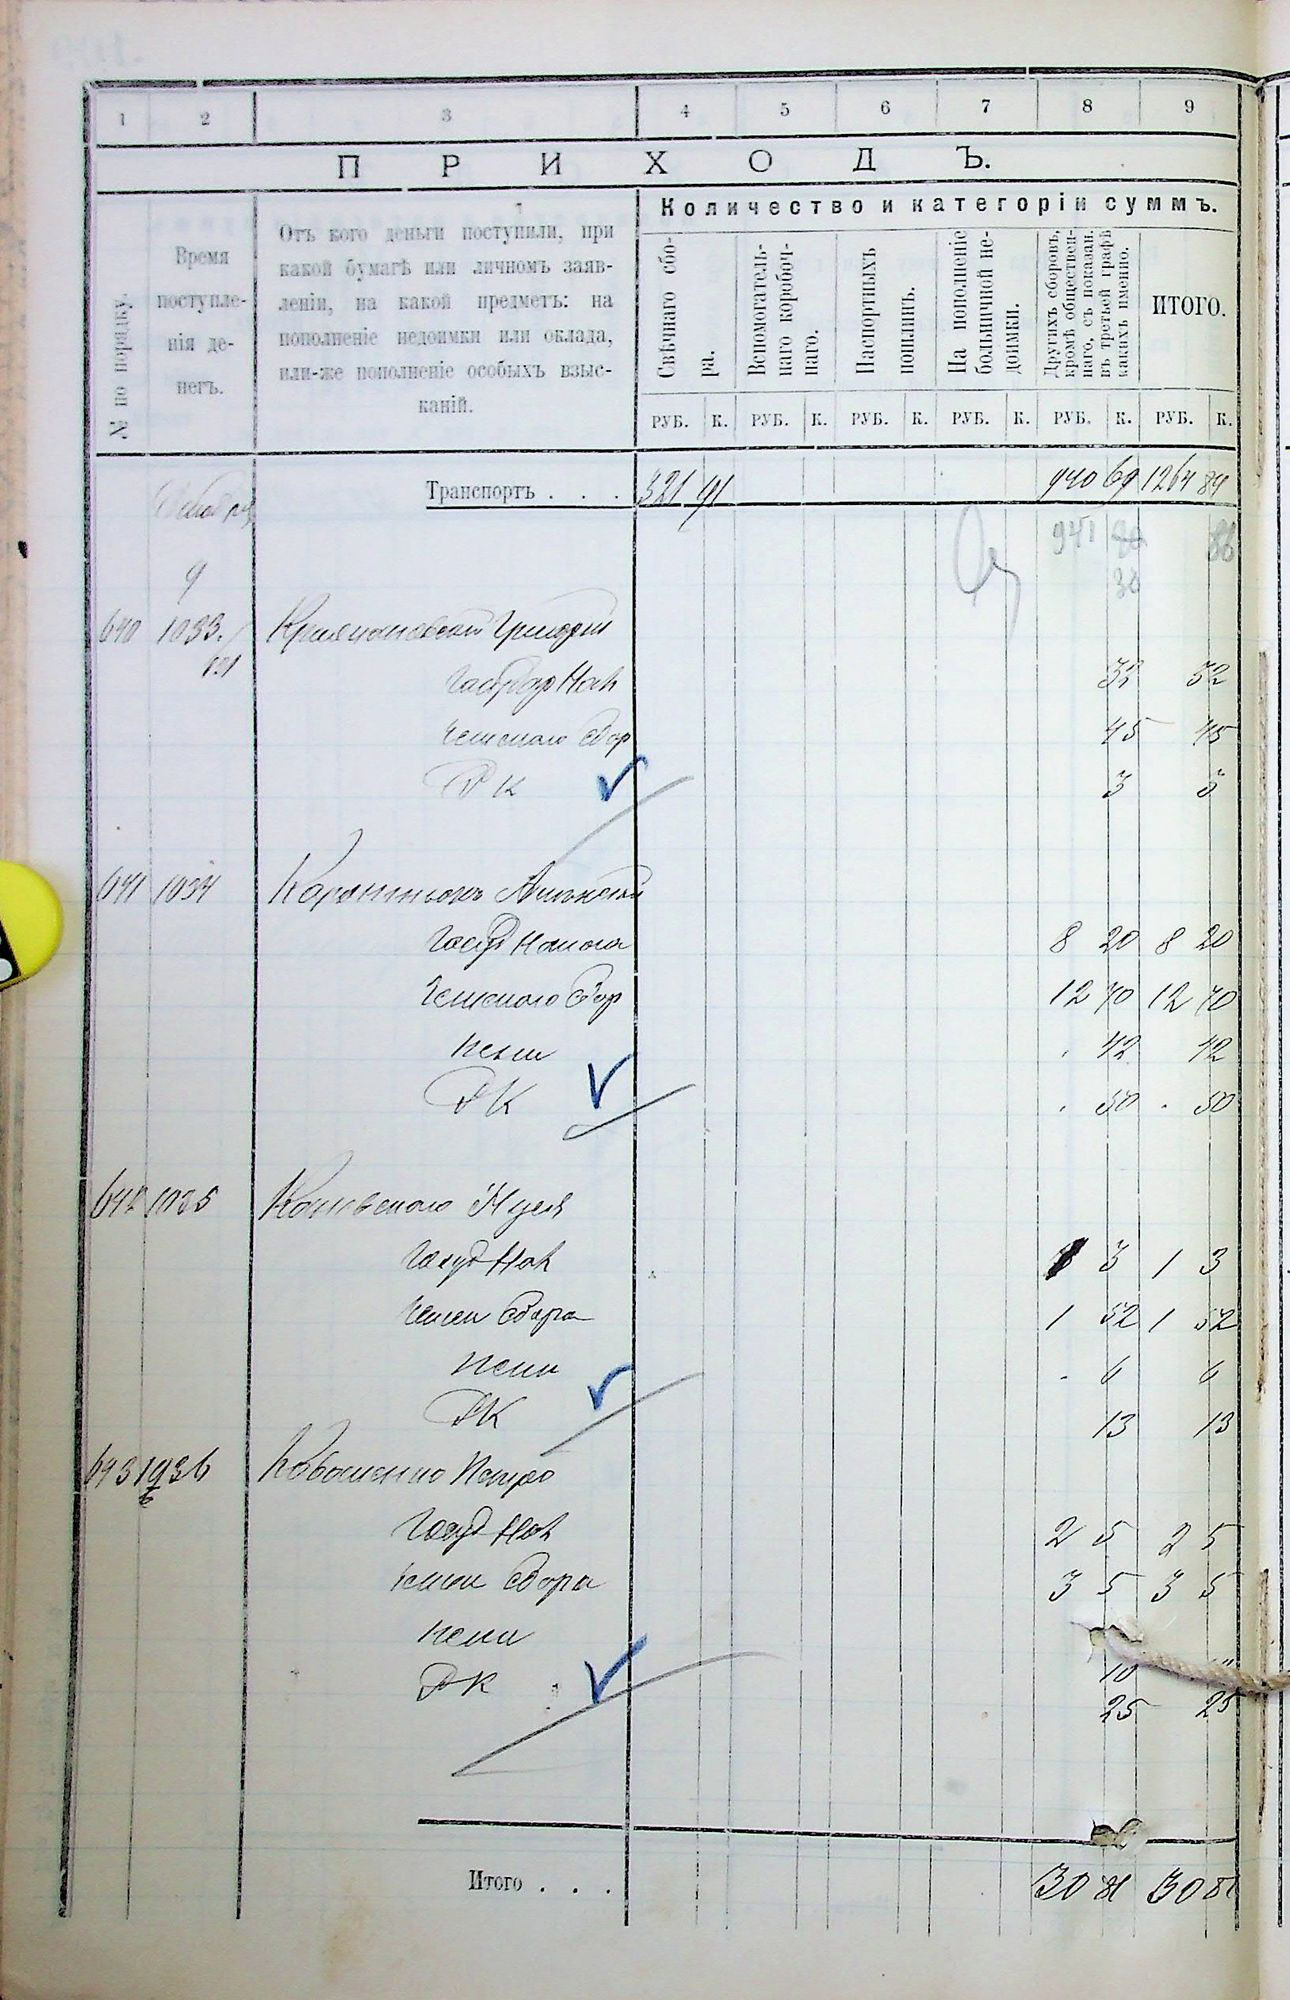 1 2 3 4 5 6 7 8 9
ПРИХОДЪ.
№ по порядку.
Время
поступле-
нія де-
негъ.
Отъ кого деньги поступили, при
какой бумагѣ или личномъ заяв-
леніи, на какой предметъ: на
пополненіе недоимки или оклада,
или-же пополненіе особыхъ взыс-
каній.
Количество и категоріи суммъ.
Свѣчнаго сбо-
ра.
Вспомогатель-
наго коробоч-
наго.
Паспортныхъ
пошлинъ.
На пополненіе
больничной не-
доимки.
Другихъ сборовъ,
кромѣ обществен-
наго, съ показан.
въ третьей графѣ
какихъ именно.
ИТОГО.
РУБ. К. РУБ. К. РУБ. К. РУБ. К. РУБ. К. РУБ. К.
Транспортъ . . . 321 91 940 69 1264 84
941
9
640 1033
32 32
45 45
РК 3 3
641 1034
Госуд Налога 8 20 8 20
Земскаго Сбор 12 70 12 70
Пени 42 42
РК 50 50
642 1035 Каневскаго
Госуд Нал 3 1 3
Земск Сбора 1 52 1 52
Пени 6 6
РК 13 13
643 1036
Госуд Нал 2 5 2 5
Земск Сбора 3 5 3 5
Пени 10
РК 25 25
Итого . . . 30 81 30 81